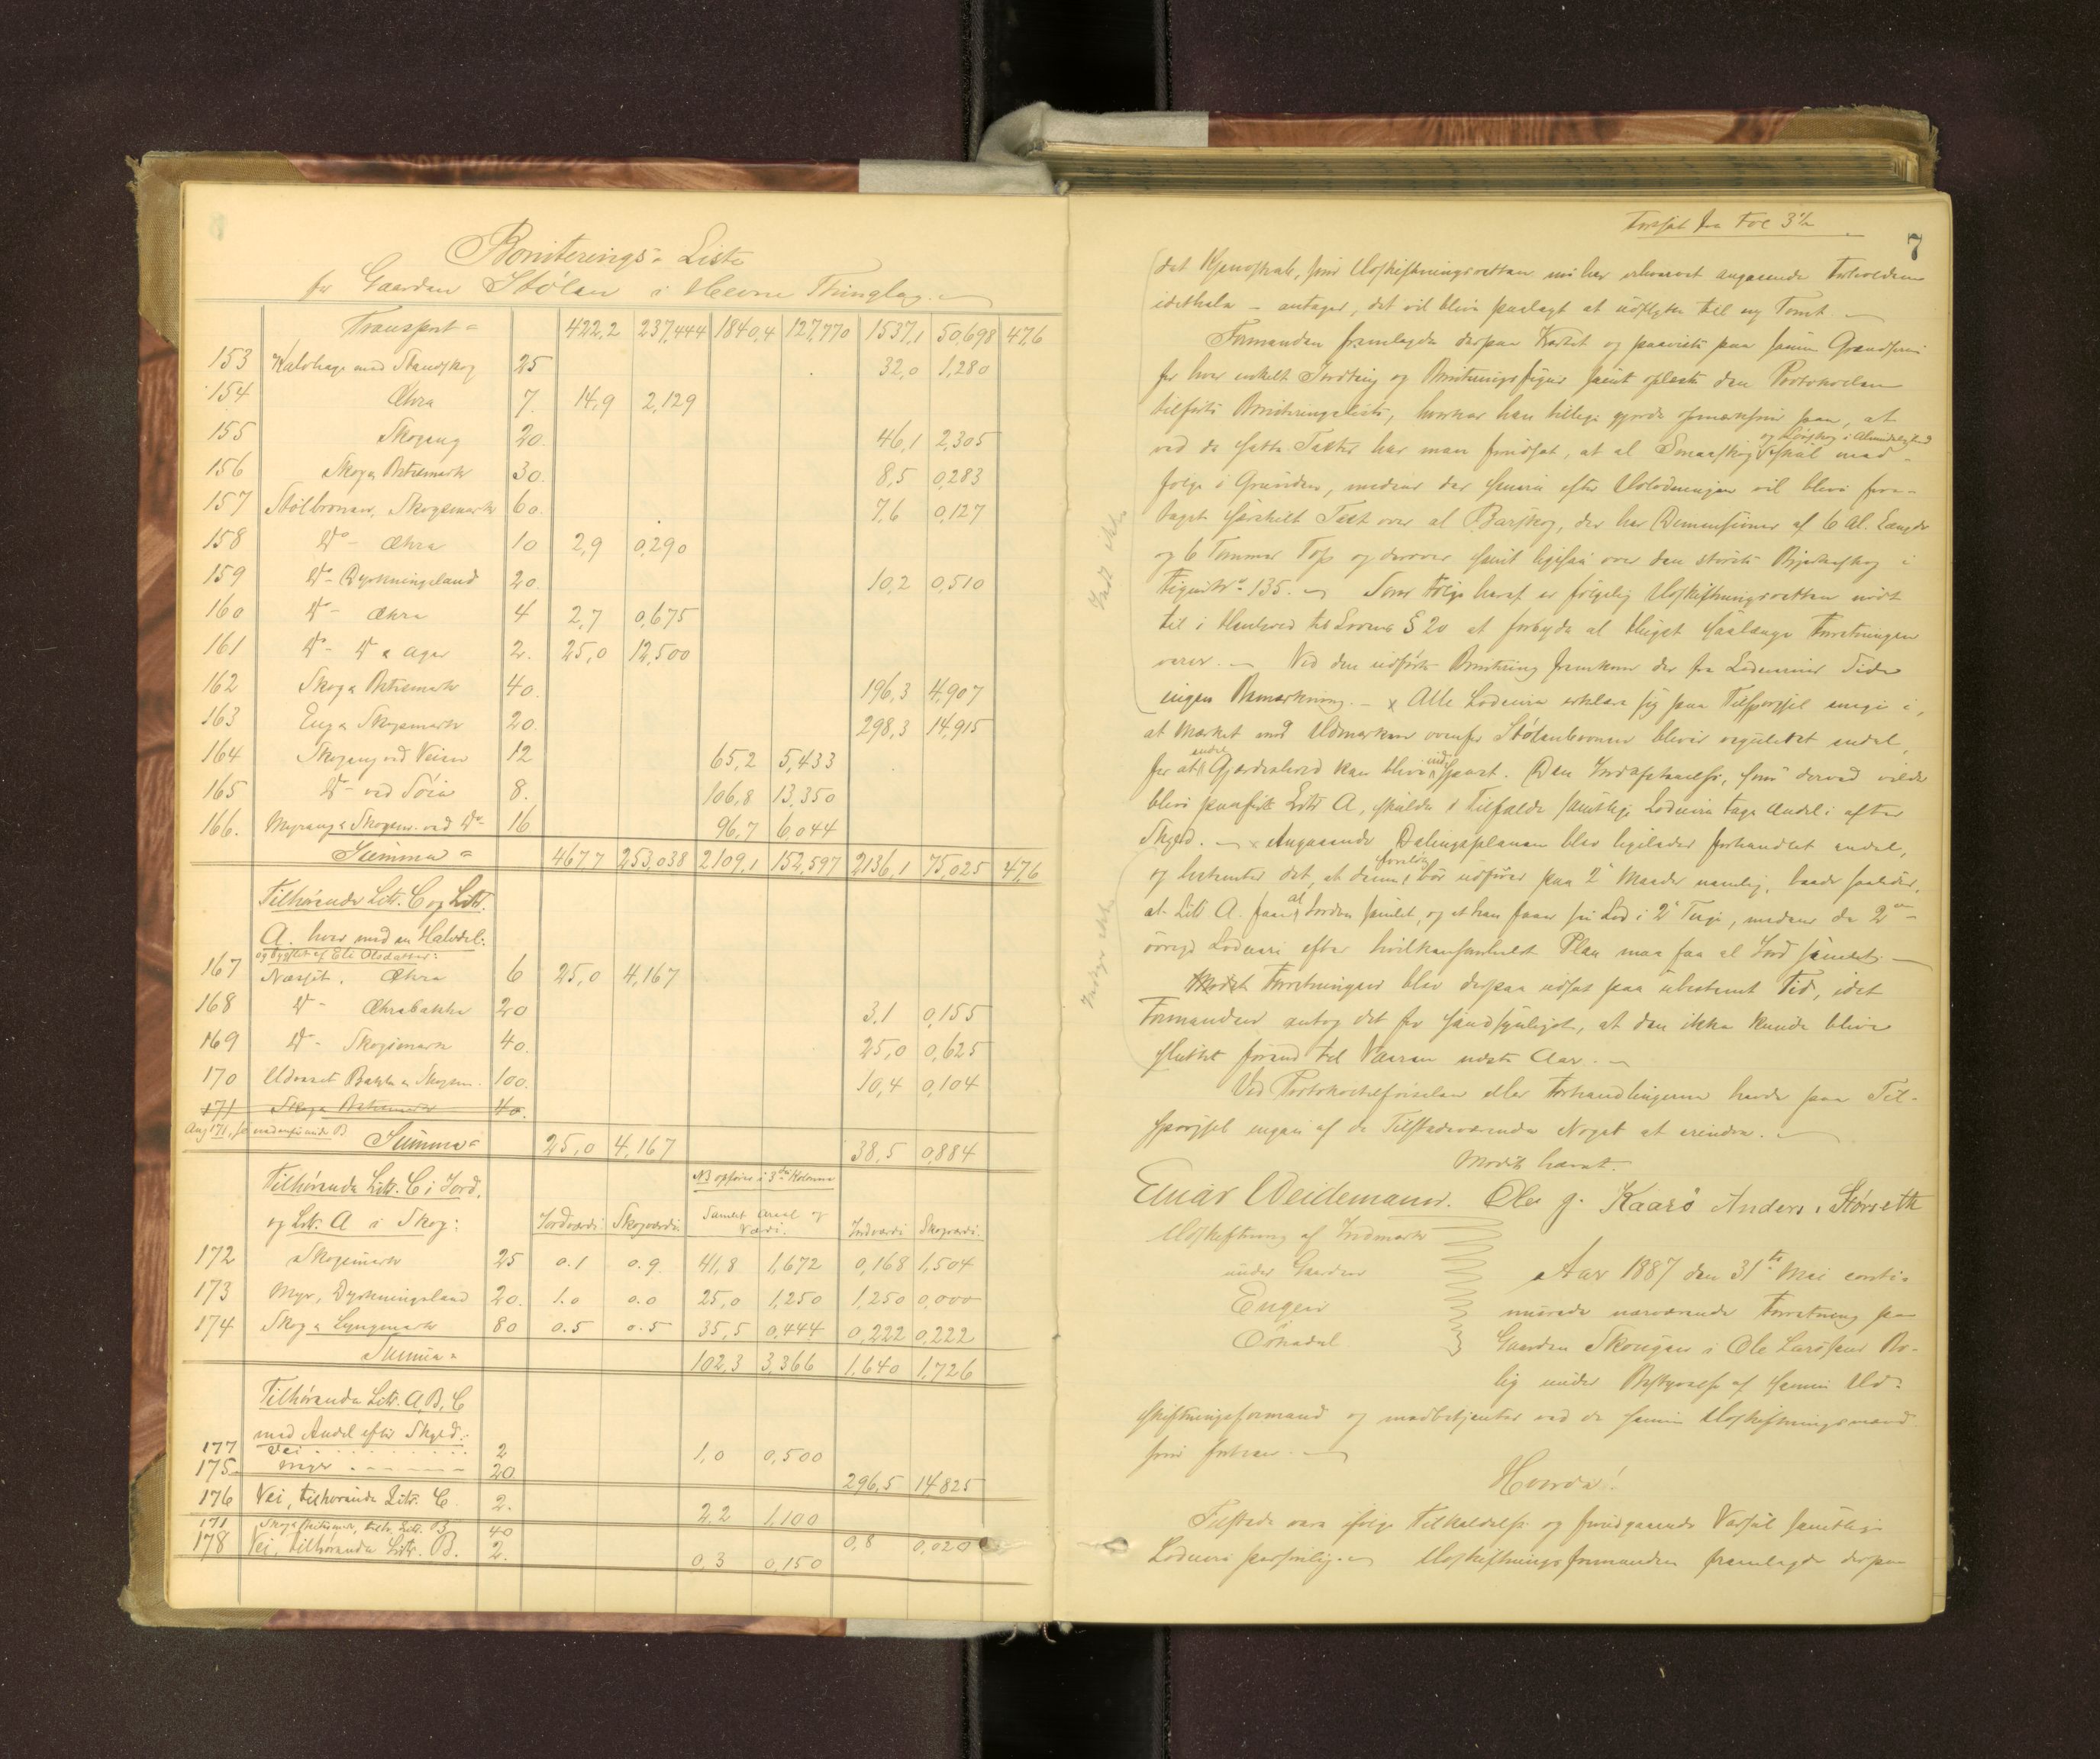 Boniterings-Liste
for Gaarden Stølen i Hevne Thinglag.
Transport = 422,2 237,444 1840,4 127,770 1537,1 50,698 47,6
153 Kalvhage med Skog 25 32,0 1,280
154 Ækra 7. 14,9 2,129
155 Skogeng 20. 46,1 2,305
156 Skog & Beitemark 30. 8,5 0,283
157 Skogsmark 60. 7,6 0,127
158 Do - Ækra 10 2,9 0,290
159 Do - Dyrkningsland 20. 10,2 0,510
160 Do - Ækra 4 2,7 0,675
161 Do - Do & Ager 2. 25,0 12,500
162 Skog & Beitemark 40. 196,3 4,907
163 Eng & Skogsmark 20. 298,3 14,915
164 Skogeng ved Veien 12 65,2 5,433
165 Do - ved Søen 8. 106,8 13,350
166. Myreng & Skogsm. ved Do 16 96,7 6,044
Summa = 467,7 253,038 2109,1 152,597 2136,1 75,025 47,6
Tilhørende Litr. C og Litr.
A. hver med en Halvdel.
og bygslet af Eli Olsdatter:
167 Ækra 6 25,0 4,167
168 Do - Ækrabakke 20 3,1 0,155
169 Do - Skogsmark 40. 25,0 0,625
170 Bakke & Skogsm. 100. 10,4 0,104
171 Skog & Beitemark 40.
Summa = 25,0 4,167 38,5 0,884
NB opføres i 3die Kolonne
Tilhørende Litr. C i Jord,
og Litr. A i Skog:
Jordværdi Skogværdi Samlet Areal og Værdi. Jordværdi Skogværdi.
172 Skogsmark 25 0.1 0.9 41,8 1,672 0,168 1,504
173 Myr, Dyrkningsland 20. 1.0 0.0 25,0 1,250 1,250 0,000
174 Skog & Lyngmark 80 0.5 0.5 35,5 0,444 0,222 0,222
Summa = 102,3 3,366 1,640 1,726
Tilhørende Litr. A, B, C
med Andel efter Skyld:
177 Vei 2 1,0 0,500
175 Myr 20 296,5 14,825
176 Vei, tilhørende Litr. C. 2. 2,2 1,100
171 Skog & Beitemark, tilh. Litr. B 40 0,8 0,020
178 Vei, tilhørende Litr. B. 2. 0,3 0,150
Fortsat fra Fol 3½
7
det Udskiftningsretten nu har erhvervet angaaende Forholdene
idethele - antager, det vil blive paalagt at udflytte til ny Tomt.
Formanden fremlagde derpaa Kartet og paaviste paa samme Grændserne
for hver enkelt Indteig og Boniteringsfigur samt oplæste den Protokollen
tilførte Boniteringsliste, hvorhos han tillige gjorde opmærksom paa, at
ved de satte Taxter har man forudsat, at al Smaaskog og Løvskog i Almindelighed skal med-
følge i Grunden, medens der senere efter Udlodningen vil blive fore-
taget særskilt Taxt over al Barskog, der har Dimensioner af 6 Al. Længde
og 6 Tommer Top og derover samt ligesaa over den største Birkeskog i
Figur No 135. Som Følge heraf er følgelig Udskiftningsretten nødt
til i Henhold til Lovens § 20 at forbyde al Hugst saalænge Forretningen
varer. - Ved den udførte Bonitering fremkom der fra Lodeiernes Side
ingen Bemærkning. - x Alle Lodeiere erklære sig paa Tilspørgsel enige i,
at Mærket mod Udmarken ovenfor bliver reguleret endel,
for at endel Gjærdehold kan blive indspart. Den Indefatnelse, som derved vilde
blive paaført Litr A, skulde i Tilfælde samtlige Lodeiere tage Andel i efter
Skyld. - x Angaaende Delingsplanen blev ligeledes forhandlet endel,
og bestemtes det, at denne foreløbig bør udføres paa 2 Maader nemlig, baade saaledes,
at Litr A. faar al Jorden samlet, og at han faar sin Lod i 2 Teige, medens de 2de
øvrige Lodeiere efter hvilkensomhelst Plan maa faa al Jord samlet. -
Forretningen blev derpaa udsat paa ubestemt Tid, idet
Formanden antog det for sandsynligst, at den ikke kunde blive
sluttet førend til Vaaren næste Aar. -
Ved Protokoltilførselen eller Forhandlingerne havde paa Til-
spørgsel ingen af de Tilstedeværende Noget at erindre. -
Mødet hævet.
Einar Weidemann. Ole J. Kaarø Anders Størseth
Udskiftning af Indmark
under Gaarden
Engen
Aar 1887 den 31te Mai conti-
nueredes nærværende Forretning paa
Gaarden Skougan i Ole Larssens Bo-
lig under Bestyrelse af samme Ud-
skiftningsformand og medbetjentes ved de samme Udskiftningsmænd
som forhen. -
Hvorda!
Tilstede vare ifølge Tilkaldelse og foregaaende Varsel samtlige
Lodeiere personlig. - Udskiftningsformanden fremlagde derpaa